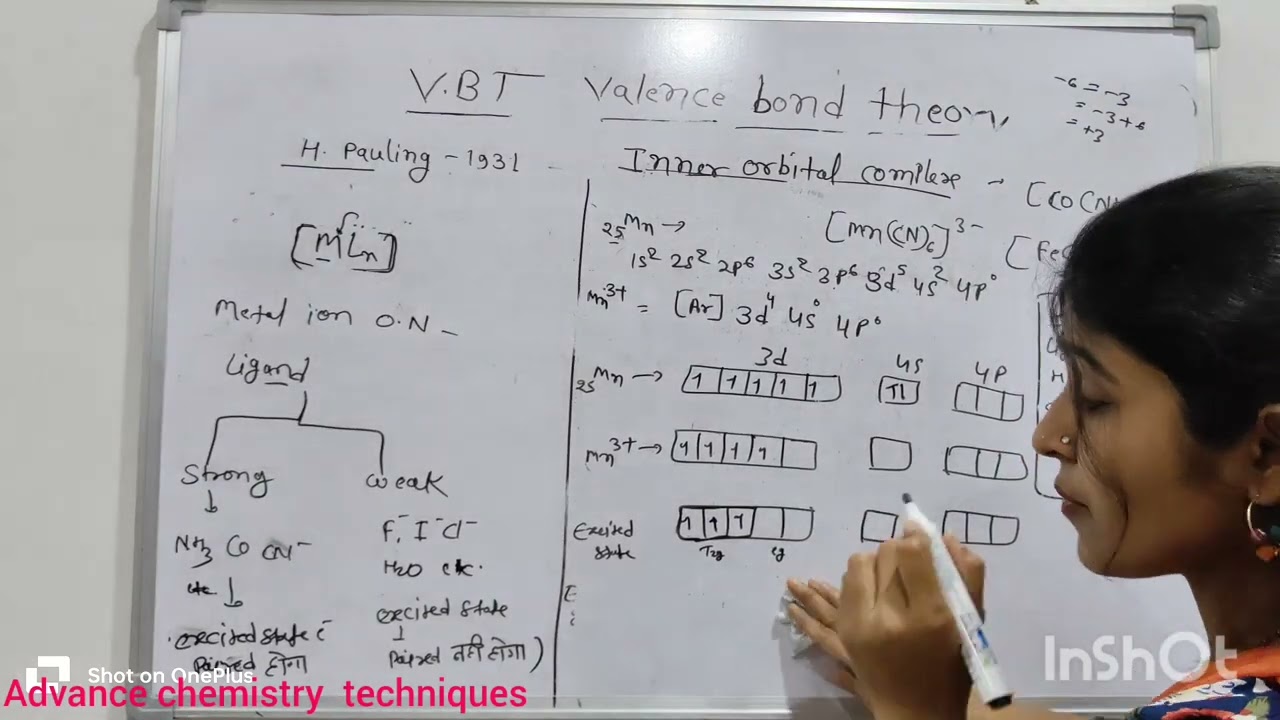 V.B.T Valence bond theory
-6 = -3
= -3+6
= +3
H. Pauling - 1931
[MLn]
Metal ion O.N -
Ligand
Strong
weak
NH3 CO CN-
etc
excited state
paired होगा
F-, I- Cl-
H2O etc.
excited state
paired नहीं होगा)
Inner orbital complex - [CO(CN
25Mn → [Mn(CN)6]3-
[Fe
1s2 2s2 2p6 3s2 3p6 3d5 4s2 4p0
Mn3+ = [Ar] 3d4 4s0 4p0
3d 4s 4p
25Mn → 1 1 1 1 1 1l
Mn3+ → 1 1 1 1
Excited
state
1 1 1
T2g eg
Shot on OnePlus
Advance chemistry techniques
InShOt